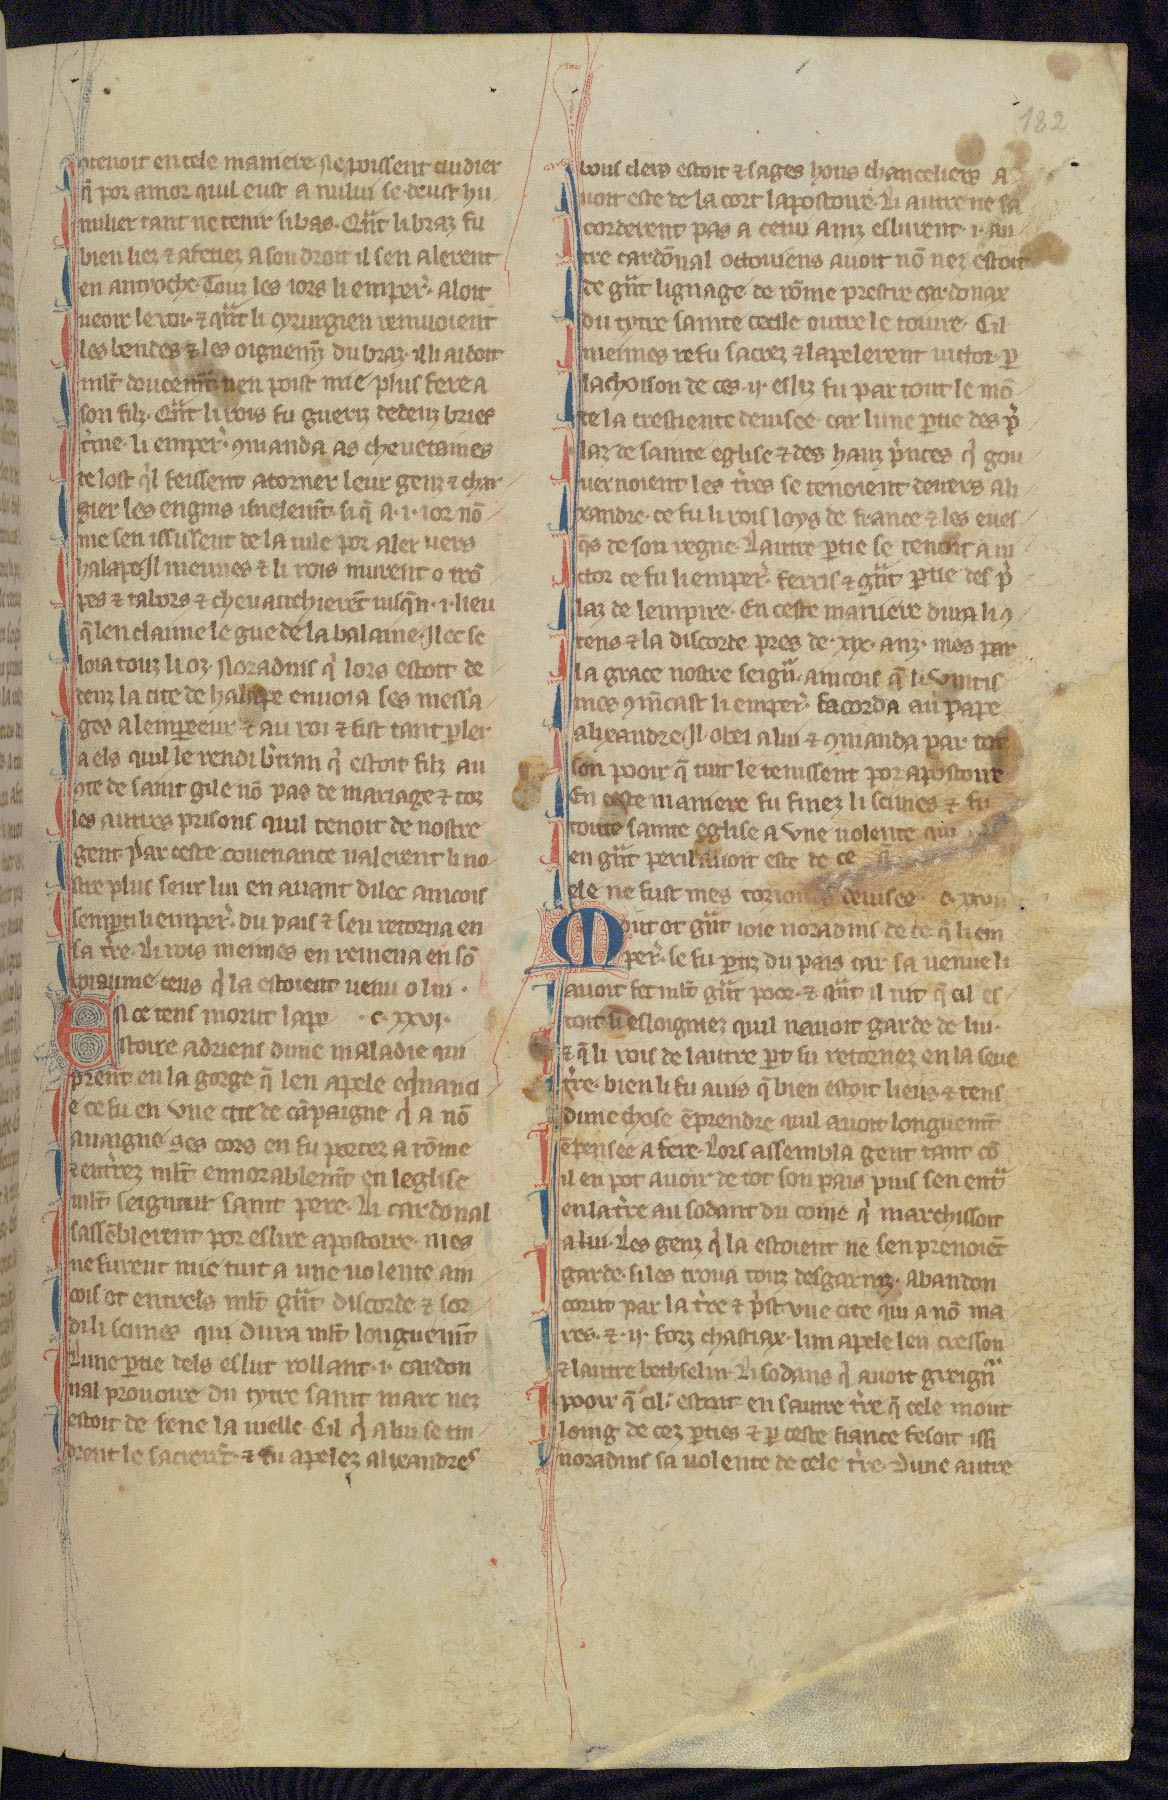 182
ꝯtenoit en tele maniere. Ne poissent cuidier
q̃ por amor quil eust a nului se deust hu
milier tant ne tenir si bas. Q̃nt li braz fu
bien liez ⁊ atenez a son droit il sen alerent
en antyoche. Touz les iors li emper̃. aloit
ueoir le roi. ⁊ q̃nt li cyrurgien remuoient
les bendes ⁊ les oignemẽz du braz. il li aidoit
ml̃t doucemẽt nen poist mie plus fere a
son filz. Q̃nt li rois fu gueriz dedenz brief
t̃me. li emper̃. ꝯmanda as cheuetaines
de lost q̃l feissent atorner leur genz ⁊ char
gier les engins isnelemẽt. si q̃ a .i. ior nõ
me sen ississent de la uile por aler uers
halape. Il meimes ⁊ li rois murent o trõ
pes ⁊ tabors ⁊ cheuauchierẽt iusq̃n .i. lieu
q̃ len claime le gue de la balaine. Ilec se
loia touz li oz. Noradins q̃ lors estoit de
denz la cite de halape enuoia ses messa
ges a lempereur ⁊ au roi ⁊ fist tant ꝑler
a els quil le rendi b̃tran q̃ estoit filz au
ꝯte de saint gile nõ pas de mariage ⁊ toz
les autres prisons quil tenoit de nostre
gent. Par ceste couenance nalerent li no
stre plus seur lui en auant dilec aincois
sempti li emper̃. du pais ⁊ sen retorna en
sa t̃re. Li rois meimes en remena en sõ
roiaume ceus q̃ la estoient uenu o lui.
E N ce tens morut lapo .c. xxvi.
stoire adriens dune maladie qui
prent en la gorge q̃ len apele eq̃nanci
e ce fu en vne cite de cãpaigne q̃ a nõ
anaigne Ses cors en fu portez a rõme
⁊ ent̃rez ml̃t ennorablemẽt en leglise
ml̃t seigneur saint pere. Li cardonal
sassẽblerent por eslire apostoire. mes
ne furent mie tuit a une uolente ain
cois ot entrels ml̃t g̃nt discorde ⁊ sor
di li scimes qui dura ml̃t longuemẽt
Lune ꝑtie dels eslut rollant .i. cardon
nal prouoire du tytre saint marc nez
estoit de sene la uielle. Cil q̃ a lui se tin
drent le sacrerẽt. ⁊ fu apelez alixandres
bons clers estoit ⁊ sages hons chanceliers a
uoit este de la cort lapostoire. Li autre ne sa
corderent pas a celui ainz eslurent .i. au
tre cardõnal octouiens auoit nõ nez estoit
de g̃nt lignage de rõme prestre cardonax
du tytre sainte cecile outre le toiure. Cil
meimes refu sacrez ⁊ lapelerent uictor. ꝑ
lachoison de ces .ii. esliz fu par tout le mõ
de la crestiente deuisee. car lune ꝑtie des p̃
laz de sainte eglise ⁊ des hauz p̃nces q̃ gou
uernoient les t̃res se tenoient deuers ali
xandre. ce fu li rois loys de france ⁊ les eues
q̃s de son regne. Lautre ꝑtie se tenoit a ui
ctor ce fu li emper̃. ferris ⁊ g̃nt ꝑtie des p̃
laz de lempire. En ceste maniere dura li ꝯ
tens ⁊ la discorde pres de .xix. anz. mes par
la grace nostre seign̾. aincois q̃ li vintis
mes ꝯmẽcast li emper̃. sacorda au pape
alixandre. Il obei a lui ⁊ ꝯmanda par tot
son pooir q̃ tuit le tenissent por apostoire
En ceste maniere fu finez li scimes ⁊ fu
toute sainte eglise a vne uolente qui
en g̃nt peril auoit este de ce
ele ne fust mes torioués deuisee. c. xxvii
M out ot g̃nt ioie noradins de ce q̃ li em
per̃. se fu ꝑtiz du pais car sa uenue li
auoit fet ml̃t g̃nt poor. ⁊ q̃nt il uit q̃ cil es
toit si esloigniez quil nauoit garde de lui.
⁊ q̃ li rois de lautre ꝑt fu retornez en la seue
t̃re. bien li fu auis q̃ bien estoit lieus ⁊ tens
dune chose ẽprendre quil auoit longuemẽt
ẽpensee a fere. Lors assembla gent tant cõ
il en pot auoir de tot son pais puis sen ent̃
en la t̃re au sodant du coine q̃ marchissoit
a lui. Les genz q̃ la estoient ne sen prenoiẽt
garde. si les troua touz desgarniz. Abandon
corut par la t̃re ⁊ p̃st vne cite qui a nõ ma
res. ⁊ .ii. forz chastiax. lun apele len cresson
⁊ lautre bethselin. Li sodans q̃ auoit greign̾
pooir q̃ cil. estoit en sautre t̃re q̃ cele mout
loing de cez ꝑties ⁊ ꝑ ceste fiance fesoit issi
noradins sa uolente de cele t̃re. Dune autre